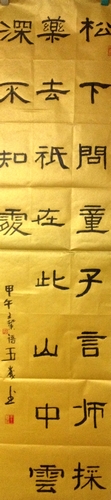 松下問童子言師採
藥去衹在此山中雲
深不知處
甲午